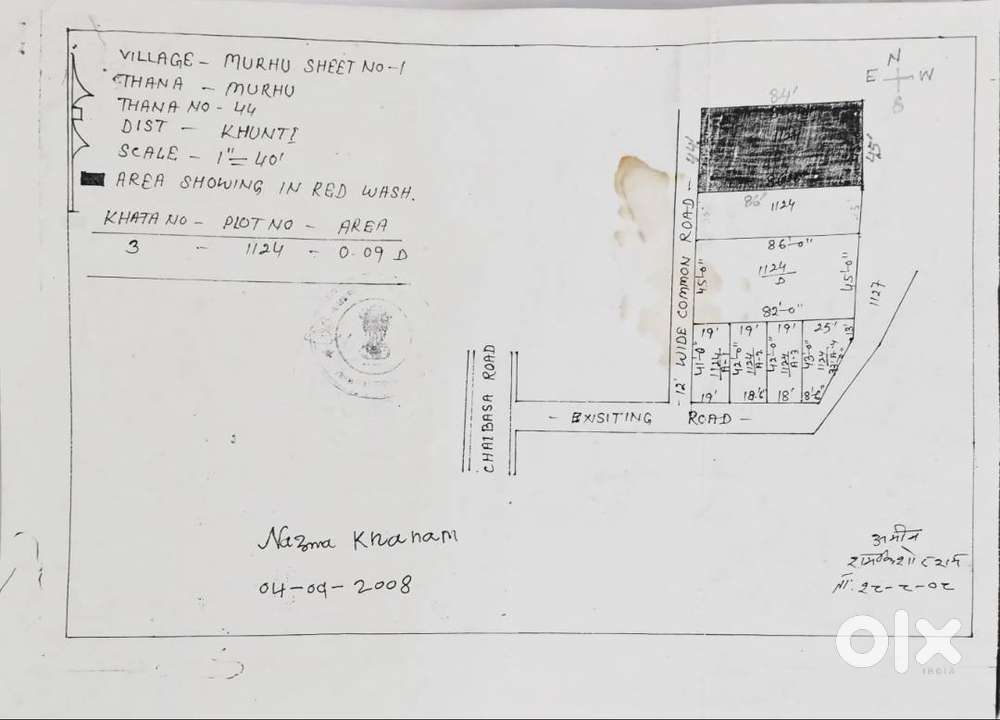 VILLAGE - MURHU SHEET NO-1
THANA - MURHU
THANA NO - 44
DIST - KHUNTI
SCALE - 1" = 40'
AREA SHOWING IN RED WASH.
KHATA NO - PLOT NO - AREA
3 - 1124 - 0.09 D
N
E W
S
84'
44'
45'
1124
86'
1124
86'-0"
45'-0"
1124/D
45'-0"
82'-0"
1127
12' WIDE COMMON ROAD
19' 19' 19' 25'
13'
41'-0" 1124/A-1 42'-0" 1124/A-2 42'-0" 1124/A-3 43'-0" 1124/A-4
19' 18'.6" 18' 8'6"
CHAIBASA ROAD
- EXISITING ROAD -
Nazma Khanam
04-09-2008
अमीन
olx
INDIA